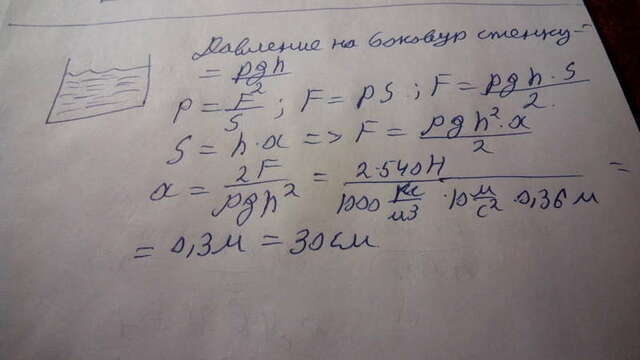 Давление на боковую стенку =
= ρgh/2
P = F/S ; F = PS ; F = ρgh·S/2
S = h·a => F = ρgh²·a/2
a = 2F/ρgh² = 2·540Н/1000 кг/м3 ·10 м/с² ·0,36 м =
= 0,3м = 30см